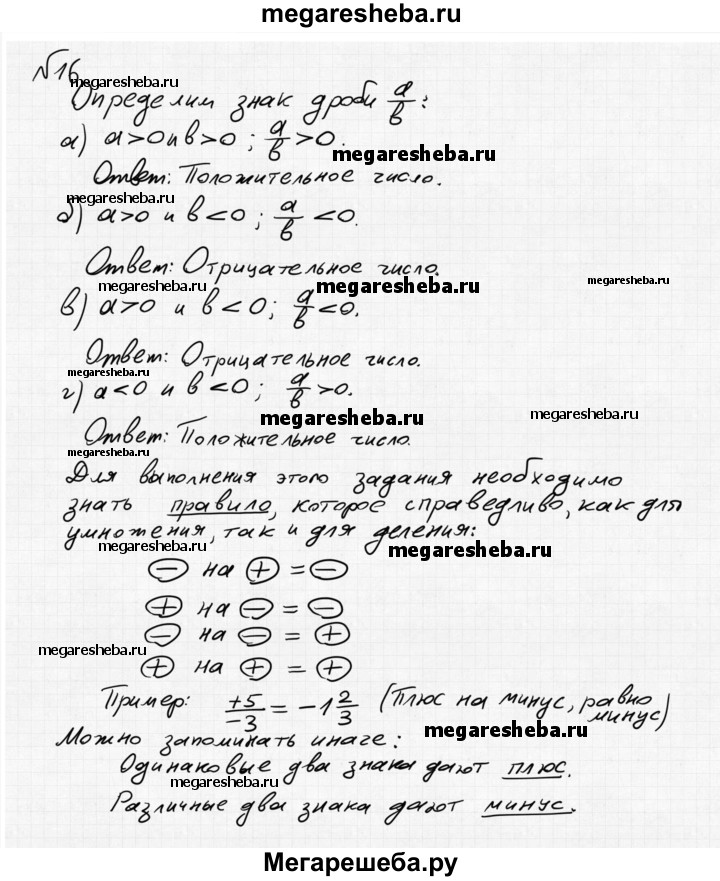 megaresheba.ru
№16
megaresheba.ru
Определим знак дроби a/b:
а) a>0 и b>0 ; a/b >0.
megaresheba.ru
Ответ: Положительное число.
megaresheba.ru
б) a>0 и b<0 ; a/b <0.
Ответ: Отрицательное число.
megaresheba.ru
megaresheba.ru
в) a>0 и b<0; a/b <0.
Ответ: Отрицательное число.
megaresheba.ru
г) a<0 и b<0 ; a/b >0.
megaresheba.ru
megaresheba.ru
Ответ: Положительное число.
megaresheba.ru
Для выполнения этого задания необходимо
знать правило, которое справедливо, как для
умножения, так и для деления:
megaresheba.ru
megaresheba.ru
⊖ на ⊕ = ⊖
⊕ на ⊖ = ⊖
⊖ на ⊖ = ⊕
megaresheba.ru
⊕ на ⊕ = ⊕
Пример: +5/-3 = -1 2/3 (Плюс на минус, равно
минус)
megaresheba.ru
Можно запоминать иначе:
Одинаковые два знака дают плюс.
megaresheba.ru
Различные два знака дают минус.
Мегарешеба.ру